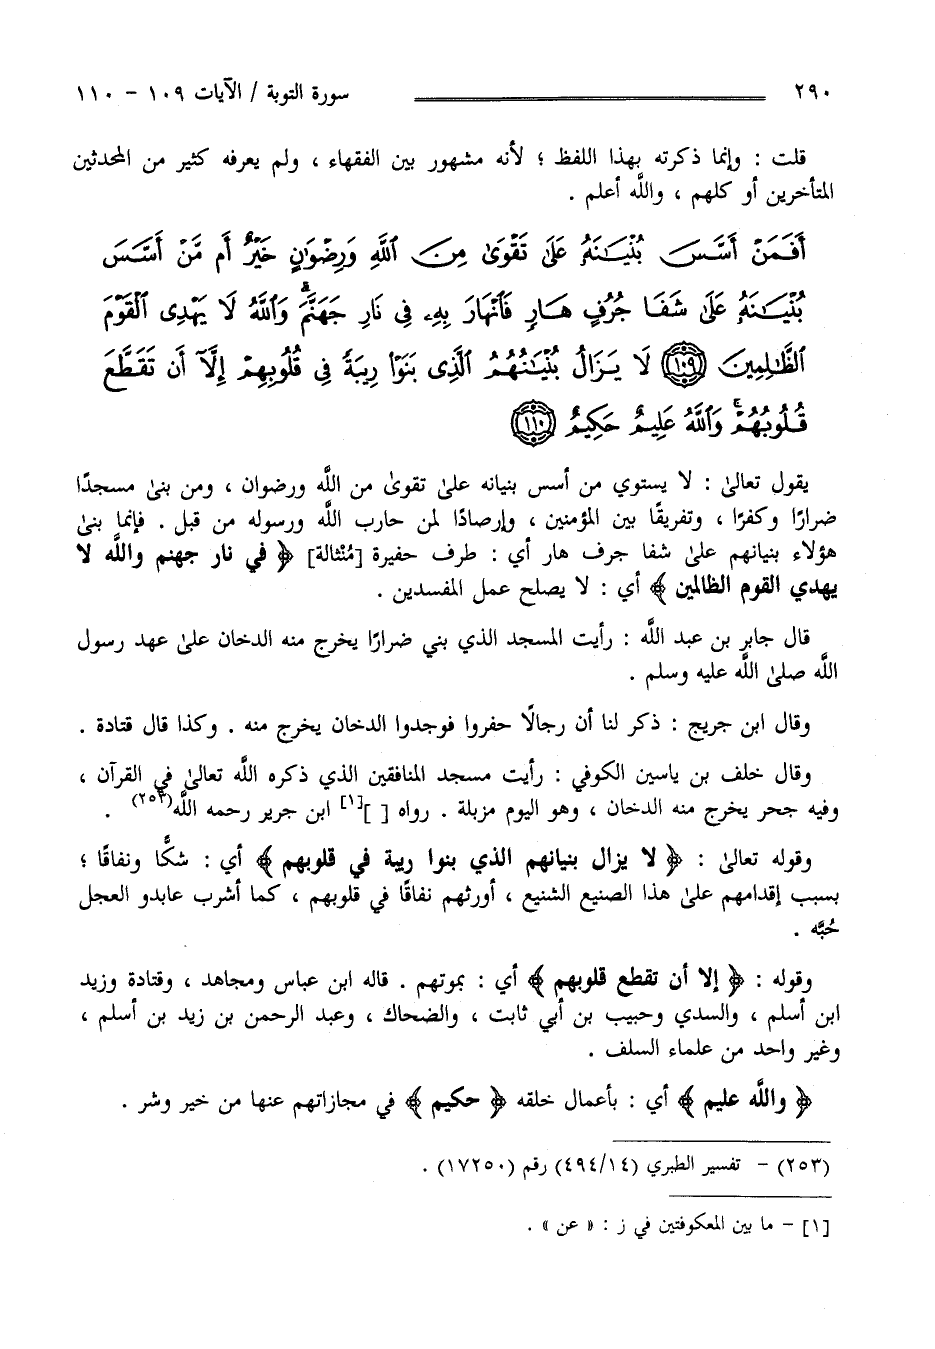 ٢٩٠ سورة التوبة / الآيات ١٠٩ - ١١٠
قلت : وإنما ذكرته بهذا اللفظ ؛ لأنه مشهور بين الفقهاء ، ولم يعرفه كثير من المحدثين
المتأخرين أو كلهم ، واللَّه أعلم .
أَفَمَنْ أَسَّسَ بُنْيَـٰنَهُۥ عَلَىٰ تَقْوَىٰ مِنَ ٱللَّهِ وَرِضْوَٰنٍ خَيْرٌ أَم مَّنْ أَسَّسَ
بُنْيَـٰنَهُۥ عَلَىٰ شَفَا جُرُفٍ هَارٍ فَٱنْهَارَ بِهِۦ فِى نَارِ جَهَنَّمَ ۗ وَٱللَّهُ لَا يَهْدِى ٱلْقَوْمَ
ٱلظَّـٰلِمِينَ ﴿١٠٩﴾ لَا يَزَالُ بُنْيَـٰنُهُمُ ٱلَّذِى بَنَوْا۟ رِيبَةً فِى قُلُوبِهِمْ إِلَّآ أَن تَقَطَّعَ
قُلُوبُهُمْ ۗ وَٱللَّهُ عَلِيمٌ حَكِيمٌ ﴿١١٠﴾
يقول تعالىٰ : لا يستوي من أسس بنيانه علىٰ تقوىٰ من اللَّه ورضوان ، ومن بنىٰ مسجدًا
ضرارًا وكفرًا ، وتفريقًا بين المؤمنين ، وإرصادًا لمن حارب اللَّه ورسوله من قبل . فإنما بنىٰ
هؤلاء بنيانهم علىٰ شفا جرف هار أي : طرف حفيرة [مُنْثالة] ﴿ في نار جهنم واللَّه لا
يهدي القوم الظالمين ﴾ أي : لا يصلح عمل المفسدين .
قال جابر بن عبد اللَّه : رأيت المسجد الذي بني ضرارًا يخرج منه الدخان علىٰ عهد رسول
اللَّه صلىٰ اللَّه عليه وسلم .
وقال ابن جريج : ذكر لنا أن رجالًا حفروا فوجدوا الدخان يخرج منه . وكذا قال قتادة .
وقال خلف بن ياسين الكوفي : رأيت مسجد المنافقين الذي ذكره اللَّه تعالىٰ في القرآن ،
وفيه جحر يخرج منه الدخان ، وهو اليوم مزبلة . رواه [ ][١] ابن جرير رحمه اللَّه(٢٥٣) .
وقوله تعالىٰ : ﴿ لا يزال بنيانهم الذي بنوا ريبة في قلوبهم ﴾ أي : شكًّا ونفاقًا ؛
بسبب إقدامهم علىٰ هذا الصنيع الشنيع ، أورثهم نفاقًا في قلوبهم ، كما أشرب عابدو العجل
حُبَّه .
وقوله : ﴿ إلا أن تقطع قلوبهم ﴾ أي : بموتهم . قاله ابن عباس ومجاهد ، وقتادة وزيد
ابن أسلم ، والسدي وحبيب بن أبي ثابت ، والضحاك ، وعبد الرحمن بن زيد بن أسلم ،
وغير واحد من علماء السلف .
﴿ واللَّه عليم ﴾ أي : بأعمال خلقه ﴿ حكيم ﴾ في مجازاتهم عنها من خير وشر .
(٢٥٣) - تفسير الطبري (٤٩٤/١٤) رقم (١٧٢٥٠) .
[١] - ما بين المعكوفتين في ز : « عن » .